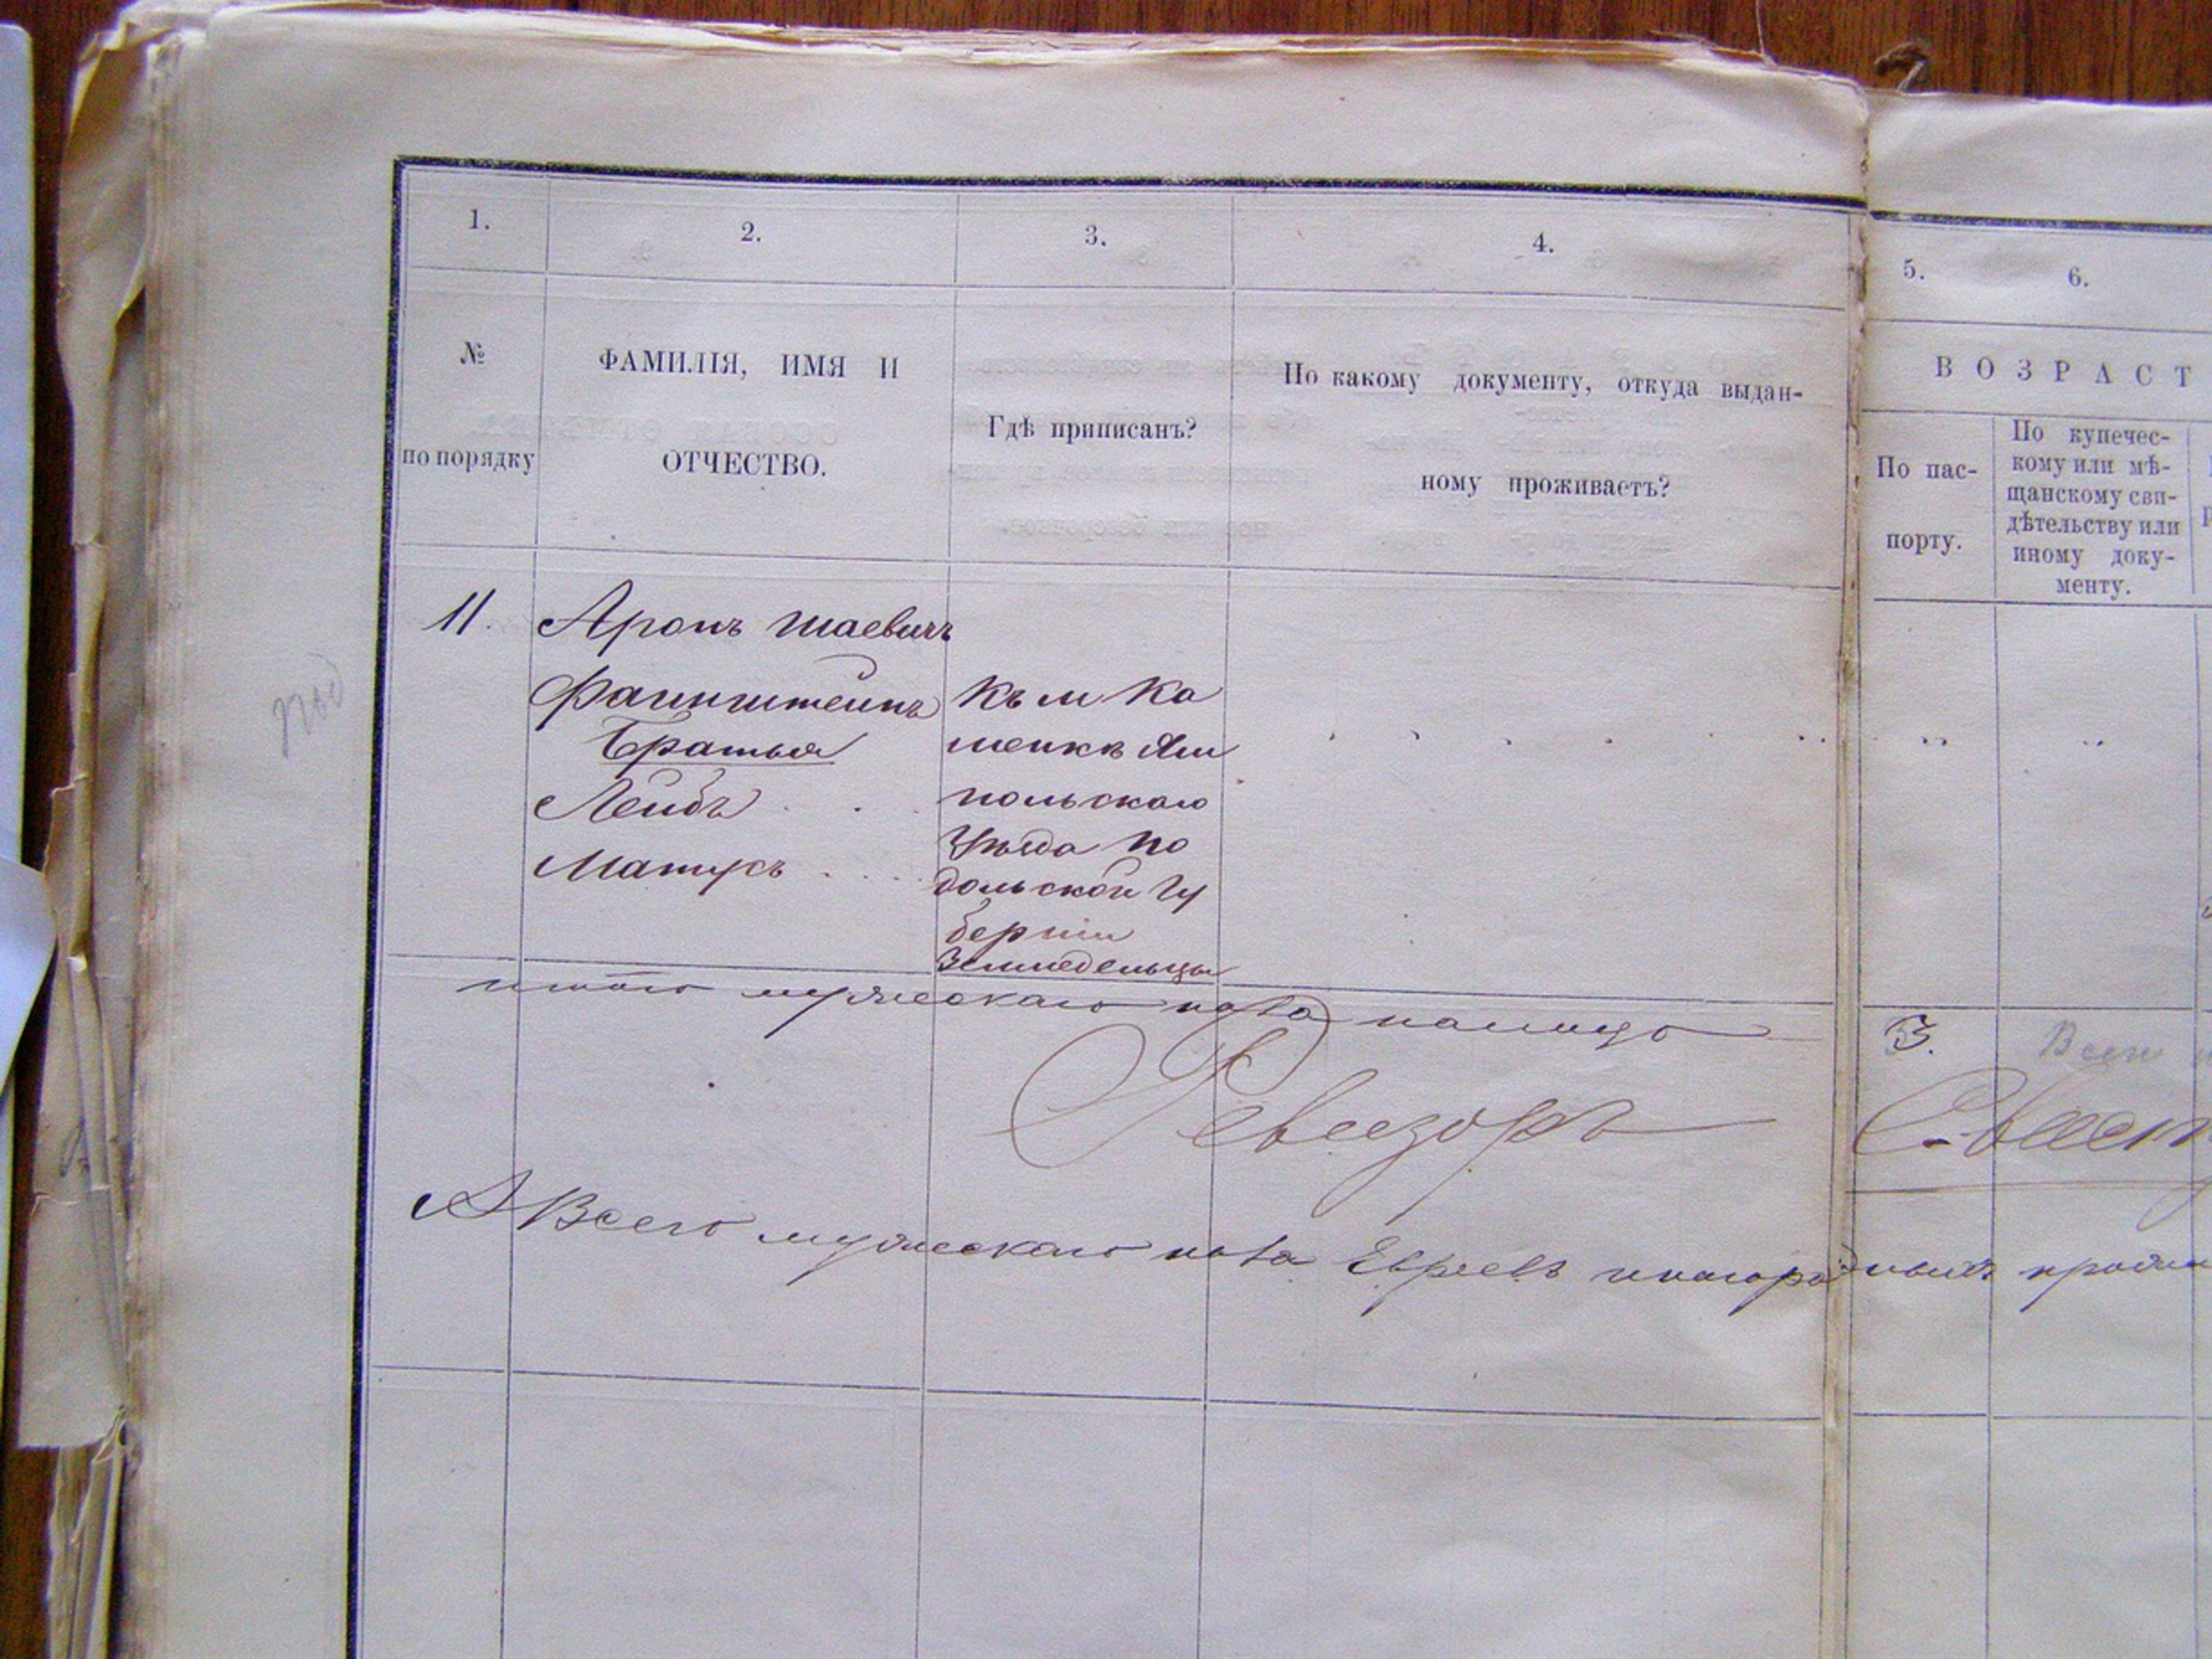 1.
2.
3.
4.
5.
6.
№
по порядку
ФАМИЛІЯ, ИМЯ И
ОТЧЕСТВО.
Гдѣ приписанъ?
По какому документу, откуда выдан-
ному проживаетъ?
ВОЗРАСТ
По пас-
порту.
По купечес-
кому или мѣ-
щанскому сви-
дѣтельству или
иному доку-
менту.
11. Аронъ Шаевичъ
Файнштейнъ
Братья
Лейбъ
къ м Ка
менкѣ Ям
польскаго
Уѣзда По
дольской Гу
берніи
Земледельцы
итого мужескаго пола налицо 3. Всего
Ревизоръ
А Всего мужескаго пола Евреевъ иногородныхъ прожи